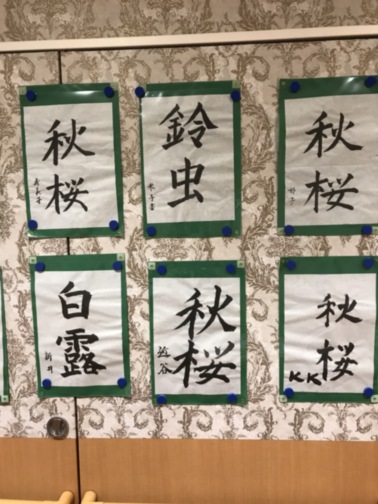 秋桜
鈴虫
秋桜
白露
新井
秋桜
澁谷
秋桜
KK